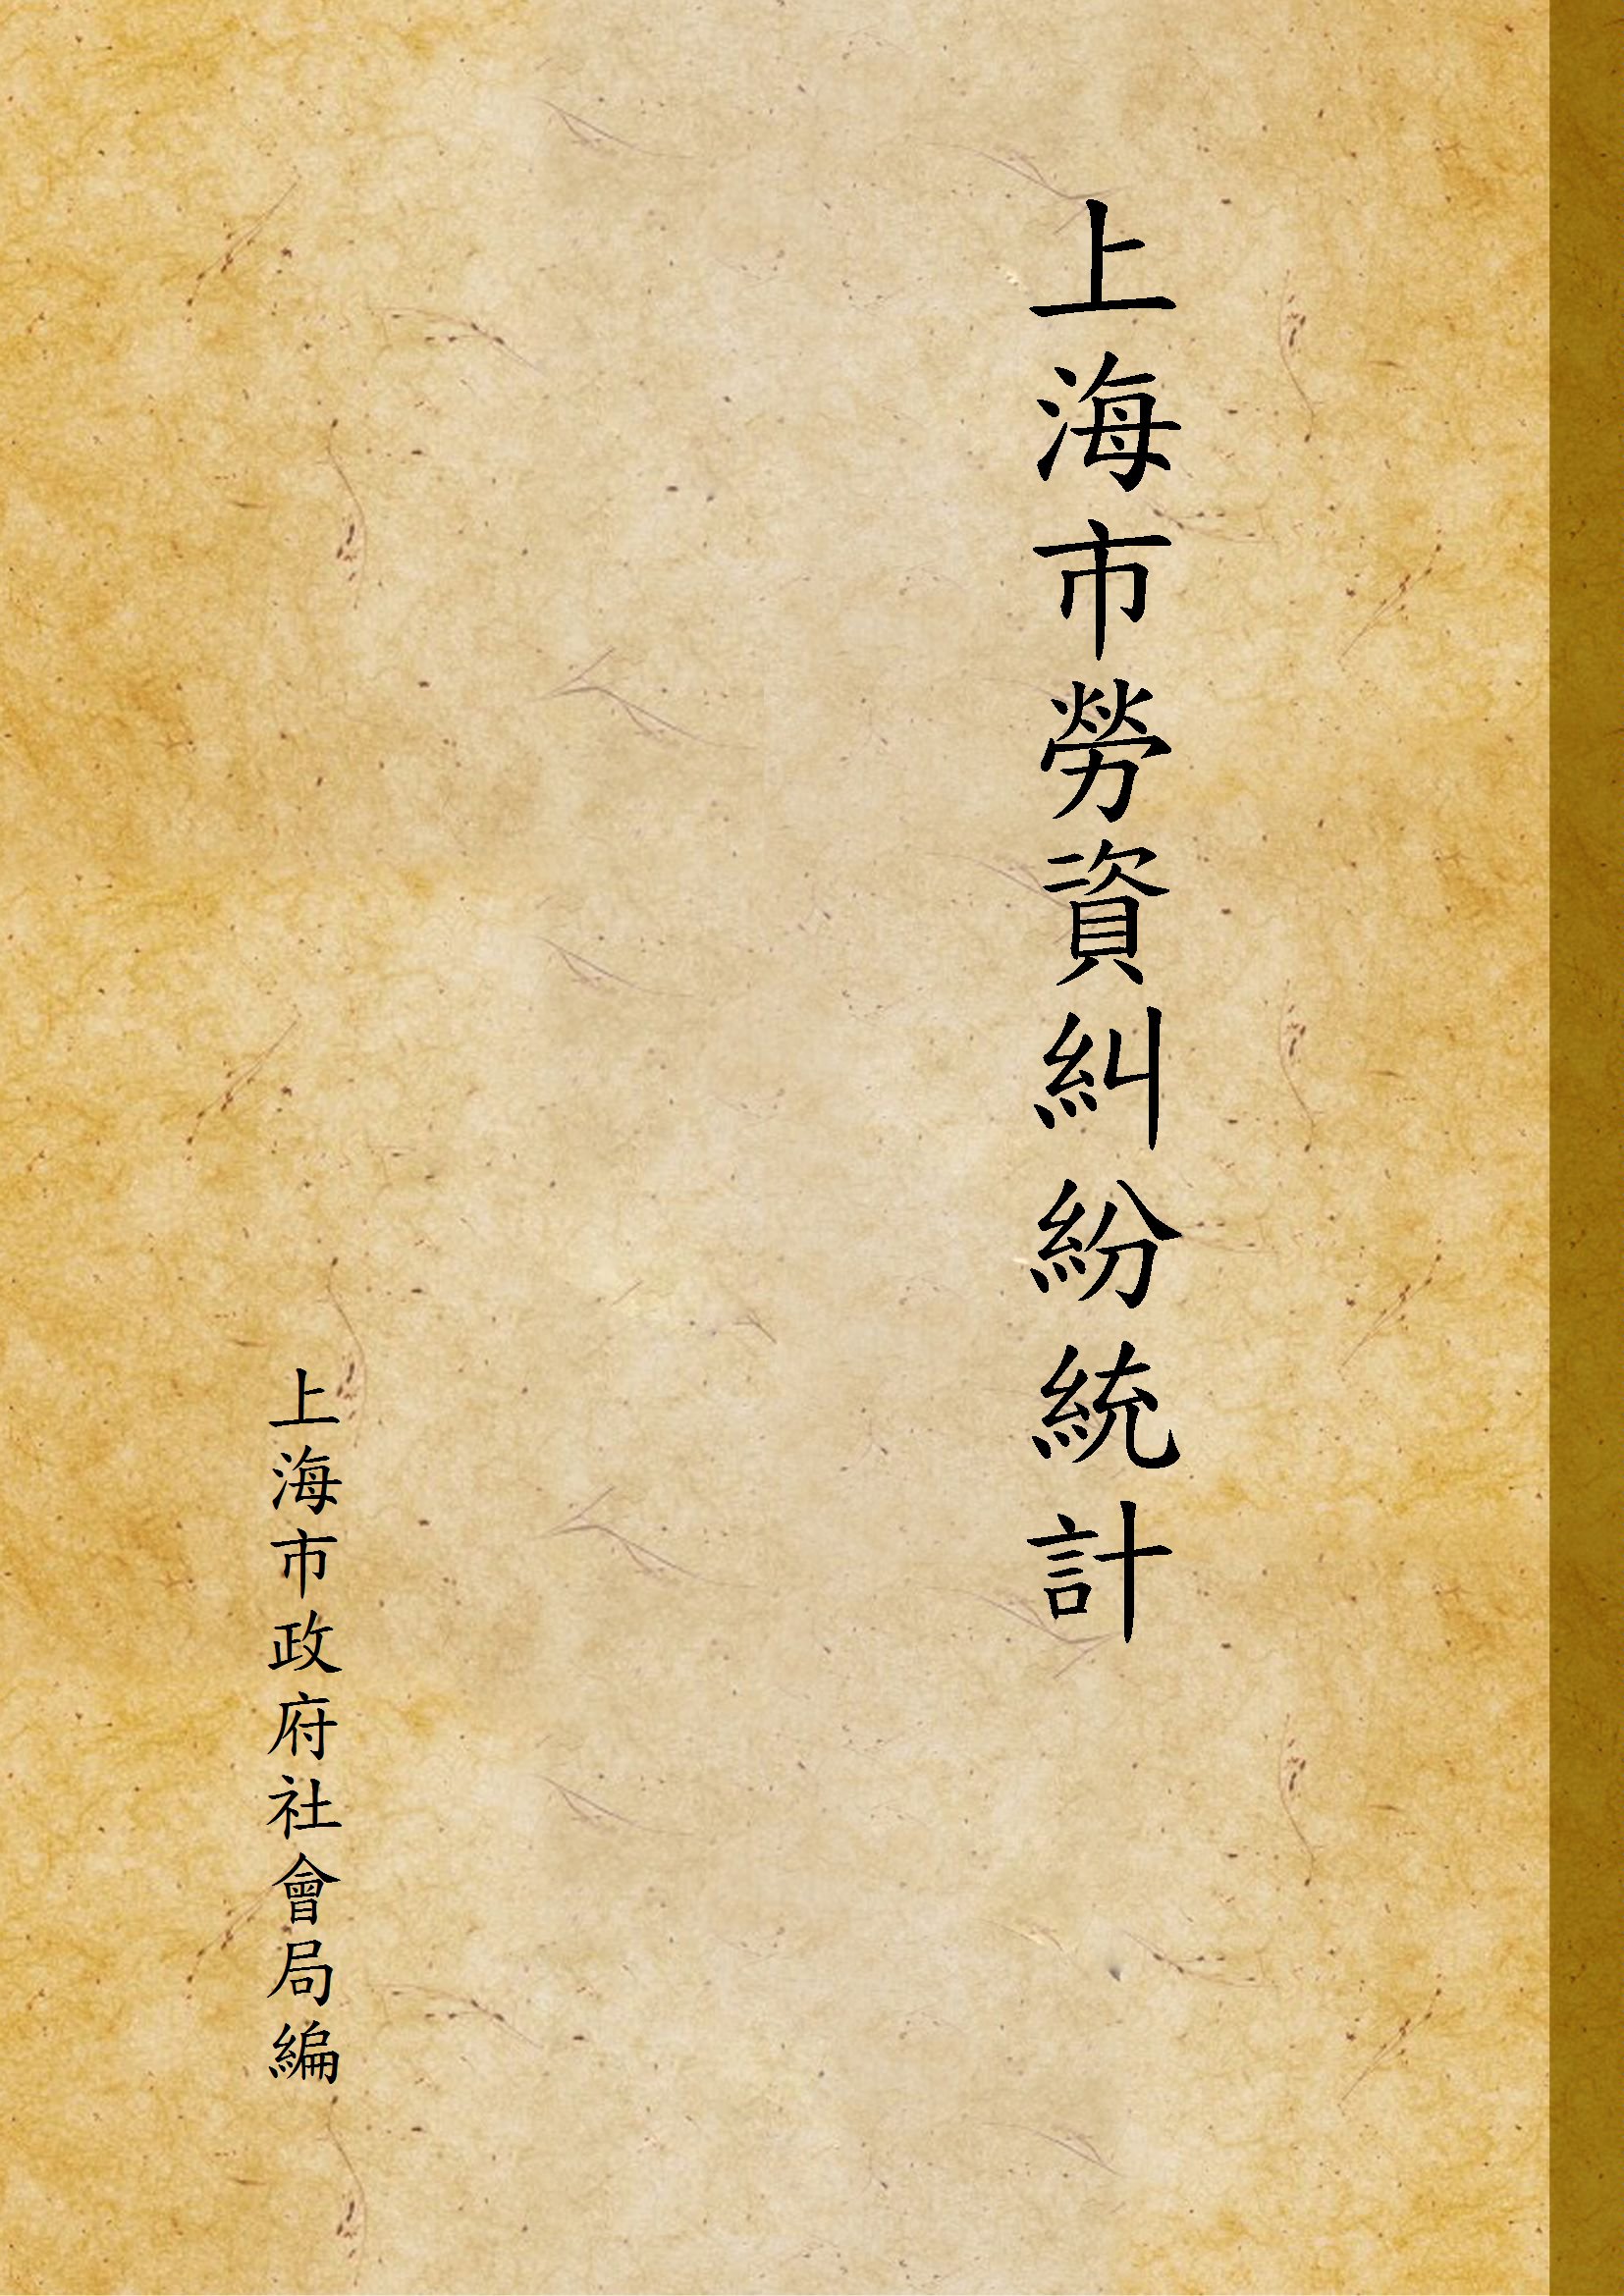 上海市勞資糾紛統計
上海市政府社會局編